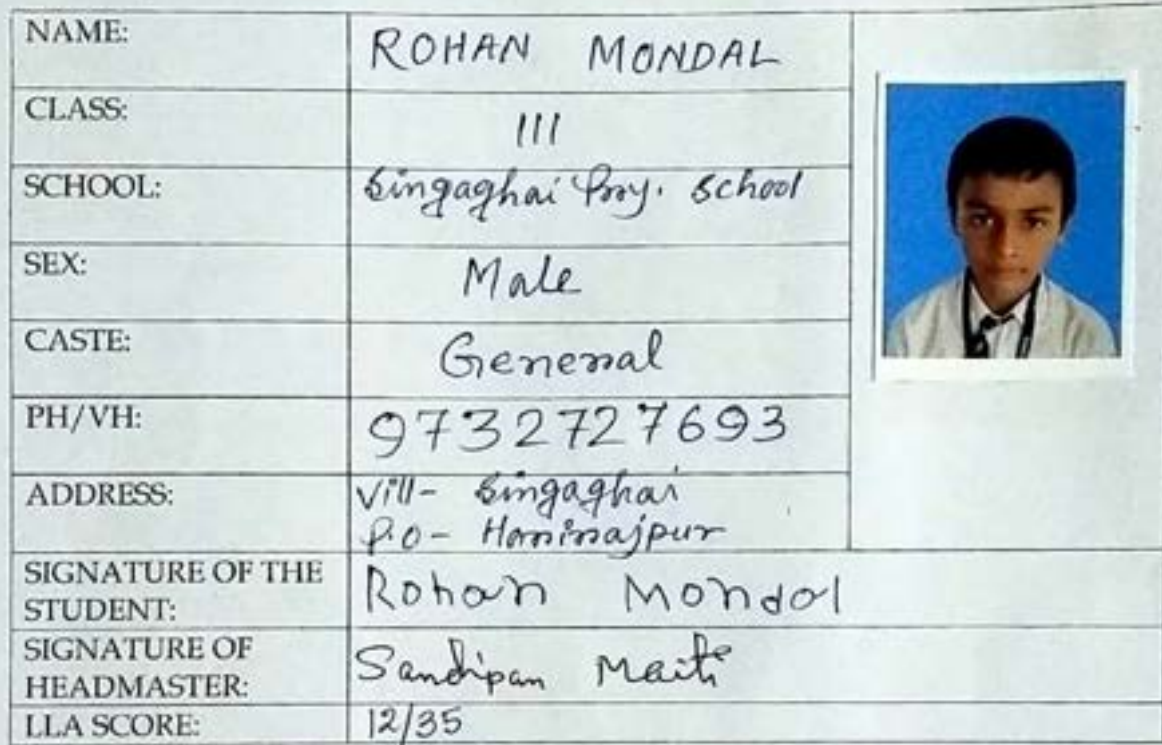 NAME: ROHAN MONDAL
CLASS: III
SCHOOL: Singaghai Pry. School
SEX: Male
CASTE: General
PH/VH: 9732727693
ADDRESS: Vill- Singaghai
P.O- Harirajpur
SIGNATURE OF THE STUDENT: Rohan Mondal
SIGNATURE OF HEADMASTER: Sandipan Maiti
LLA SCORE: 12/35